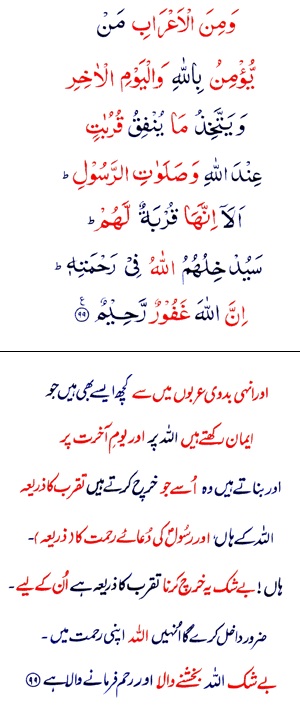 وَمِنَ الْاَعْرَابِ مَنْ
يُّؤْمِنُ بِاللّٰهِ وَالْيَوْمِ الْاٰخِرِ
وَيَتَّخِذُ مَا يُنْفِقُ قُرُبٰتٍ
عِنْدَ اللّٰهِ وَصَلَوٰتِ الرَّسُوْلِ ؕ
اَلَاۤ اِنَّهَا قُرْبَةٌ لَّهُمْ ؕ
سَيُدْخِلُهُمُ اللّٰهُ فِيْ رَحْمَتِهٖ ؕ
اِنَّ اللّٰهَ غَفُوْرٌ رَّحِيْمٌ ﴿۹۹﴾ ع
اور انہی بدوی عربوں میں سے کچھ ایسے بھی ہیں جو
ایمان رکھتے ہیں اللہ پر اور یومِ آخرت پر
اور بناتے ہیں وہ اُسے جو خرچ کرتے ہیں تقرب کا ذریعہ
اللہ کے ہاں، اور رسُولؐ کی دُعائے رحمت کا (ذریعہ)۔
ہاں! بے شک یہ خرچ کرنا تقرب کا ذریعہ ہے اُن کے لیے۔
ضرور داخل کرے گا اُنہیں اللہ اپنی رحمت میں۔
بے شک اللہ بخشنے والا اور رحم فرمانے والا ہے ﴿۹۹﴾